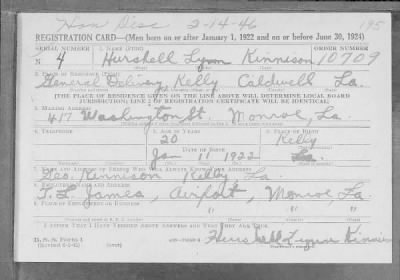 Hon Disc 2-14-46 195
REGISTRATION CARD—(Men born on or after January 1, 1922 and on or before June 30, 1924)
SERIAL NUMBER 1. NAME (Print) ORDER NUMBER
4 Hurshell Lynn Kinnison 10709
2. PLACE OF RESIDENCE (Print)
General Delivery Kelly Caldwell La.
[THE PLACE OF RESIDENCE GIVEN ON THE LINE ABOVE WILL DETERMINE LOCAL BOARD
JURISDICTION; LINE 2 OF REGISTRATION CERTIFICATE WILL BE IDENTICAL]
3. MAILING ADDRESS
417 Washington St. Monroe, La.
4. TELEPHONE 5. AGE IN YEARS 6. PLACE OF BIRTH
20 Kelly
DATE OF BIRTH
Jan 11 1922 La.
7. NAME AND ADDRESS OF PERSON WHO WILL ALWAYS KNOW YOUR ADDRESS
Geo. Kinnison Kelly La.
8. EMPLOYER'S NAME AND ADDRESS
T. L. James, Airport, Monroe, La.
9. PLACE OF EMPLOYMENT OR BUSINESS
" " "
I AFFIRM THAT I HAVE VERIFIED ABOVE ANSWERS AND THAT THEY ARE TRUE.
D. S. S. FORM 1
Hurshell Lynn Kinnison